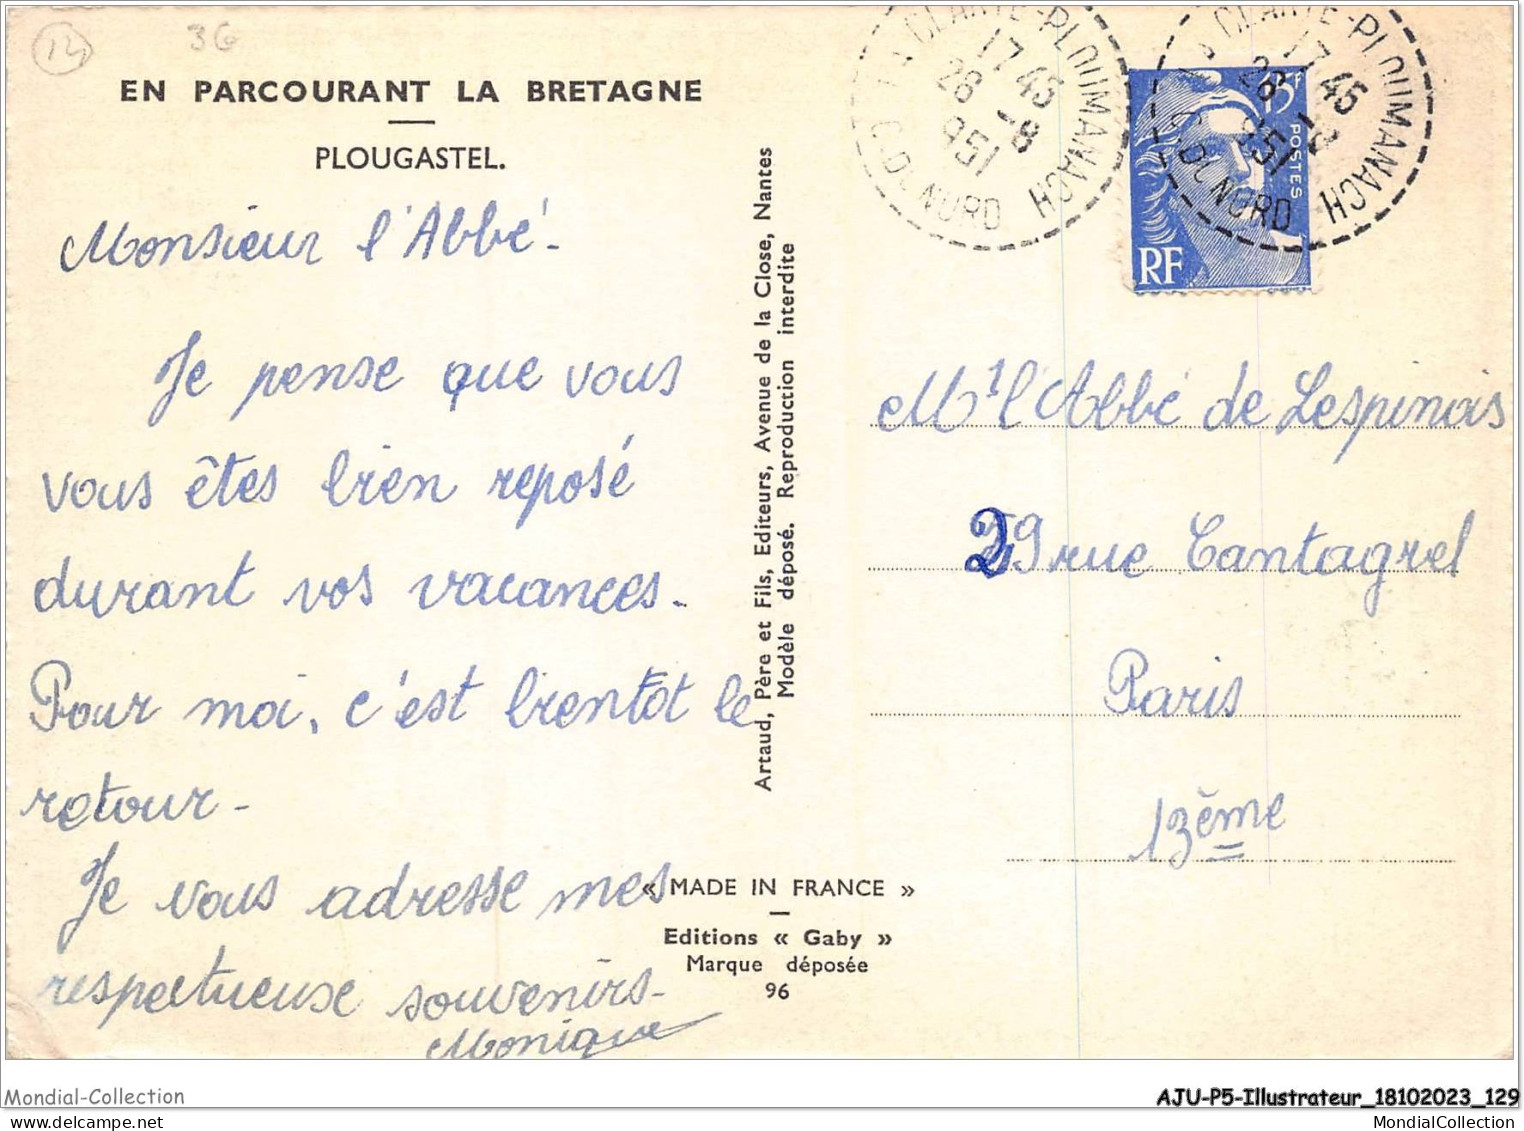 12
36
EN PARCOURANT LA BRETAGNE
PLOUGASTEL.
Monsieur l'Abbé -
Je pense que vous
vous êtes bien reposé
durant vos vacances.
Pour moi, c'est bientot le
retour -
Je vous adresse mes
respectueuse souvenirs-
Monique
Artaud, Père et Fils, Editeurs, Avenue de la Close, Nantes
Modèle déposé. Reproduction interdite
« MADE IN FRANCE »
Editions « Gaby »
Marque déposée
96
LA CLARTE-PLOUMANACH
17 45
28 -8
951
C. DU NORD
LA CLARTE-PLOUMANACH
17 45
28 -8
951
C. DU NORD
15F
POSTES
RF
Mr l'Abbé de Lespinois
29 rue Cantagrel
Paris
13ème
Mondial-Collection
AJU-P5-Illustrateur_18102023_129
MondialCollection